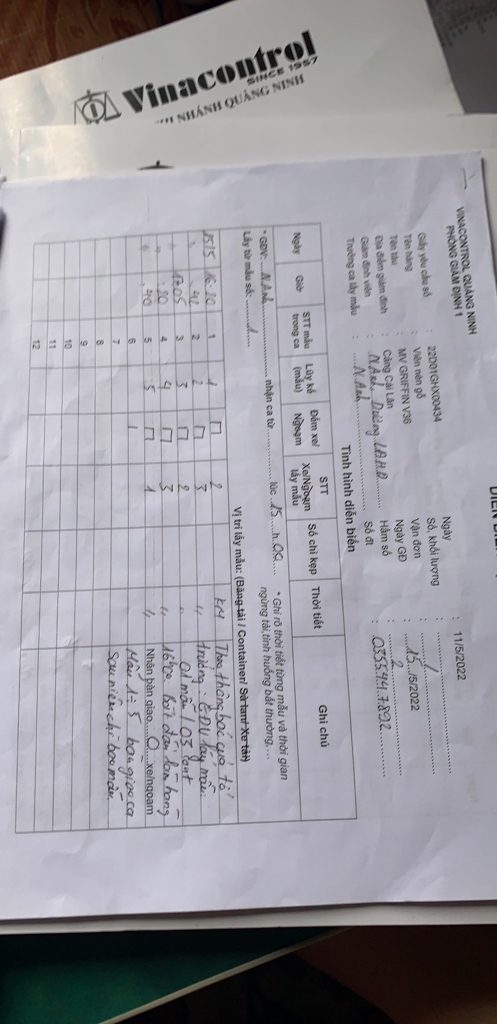 Vinacontrol
SINCE 1957
NHÁNH QUẢNG NINH
VINACONTROL QUẢNG NINH
PHÒNG GIÁM ĐỊNH 1
Ngày : 11/5/2022
Giấy yêu cầu số : 22D01GHX00434 Số, khối lượng :
Tên hàng : Viên nén gỗ Vận đơn : /
Tên tàu : MV GRIFFIN V36 Ngày GĐ : 15/5/2022
Địa điểm giám định : Cảng Cái Lân Hầm số : 2
Giám định viên : N.Anh, Dương Số đt : 0335.447.892
Trưởng ca lấy mẫu : N.Anh
Tình hình diễn biến
Ngày Giờ STT mẫu trong ca Lũy kế (mẫu) Đếm xe/ Ngoạm STT Xe/Ngoạm lấy mẫu Số chì kẹp Thời tiết Ghi chú
* GĐV: N.Anh nhận ca từ lúc 15 h 00 * Ghi rõ thời tiết từng mẫu và thời gian
Lấy từ mẫu số: 1 ngừng tải, tình huống bất thường,...
Vị trí lấy mẫu: (Băng tải / Container/ Sà lan/ Xe tải)
15/5 16:20 1 1 2 Theo thông báo của tổ
" :42 2 2 3 " trưởng: GĐV lấy mẫu:
" 17:05 3 3 2 " 01 mẫu / 03 cont
" :20 4 4 3 " 16h00. Bắt đầu làm hàng
" :40 5 5 1 " Nhân bàn giao 0 xe/ngoạm
6 Mẫu 1÷5 bàn giao ca
7 sau niêm chì bao mẫu
8
9
10
11
12